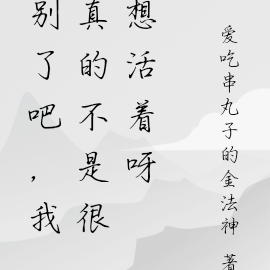 别了吧，我
真的不是很
想活着呀
爱吃串丸子的金法神 著